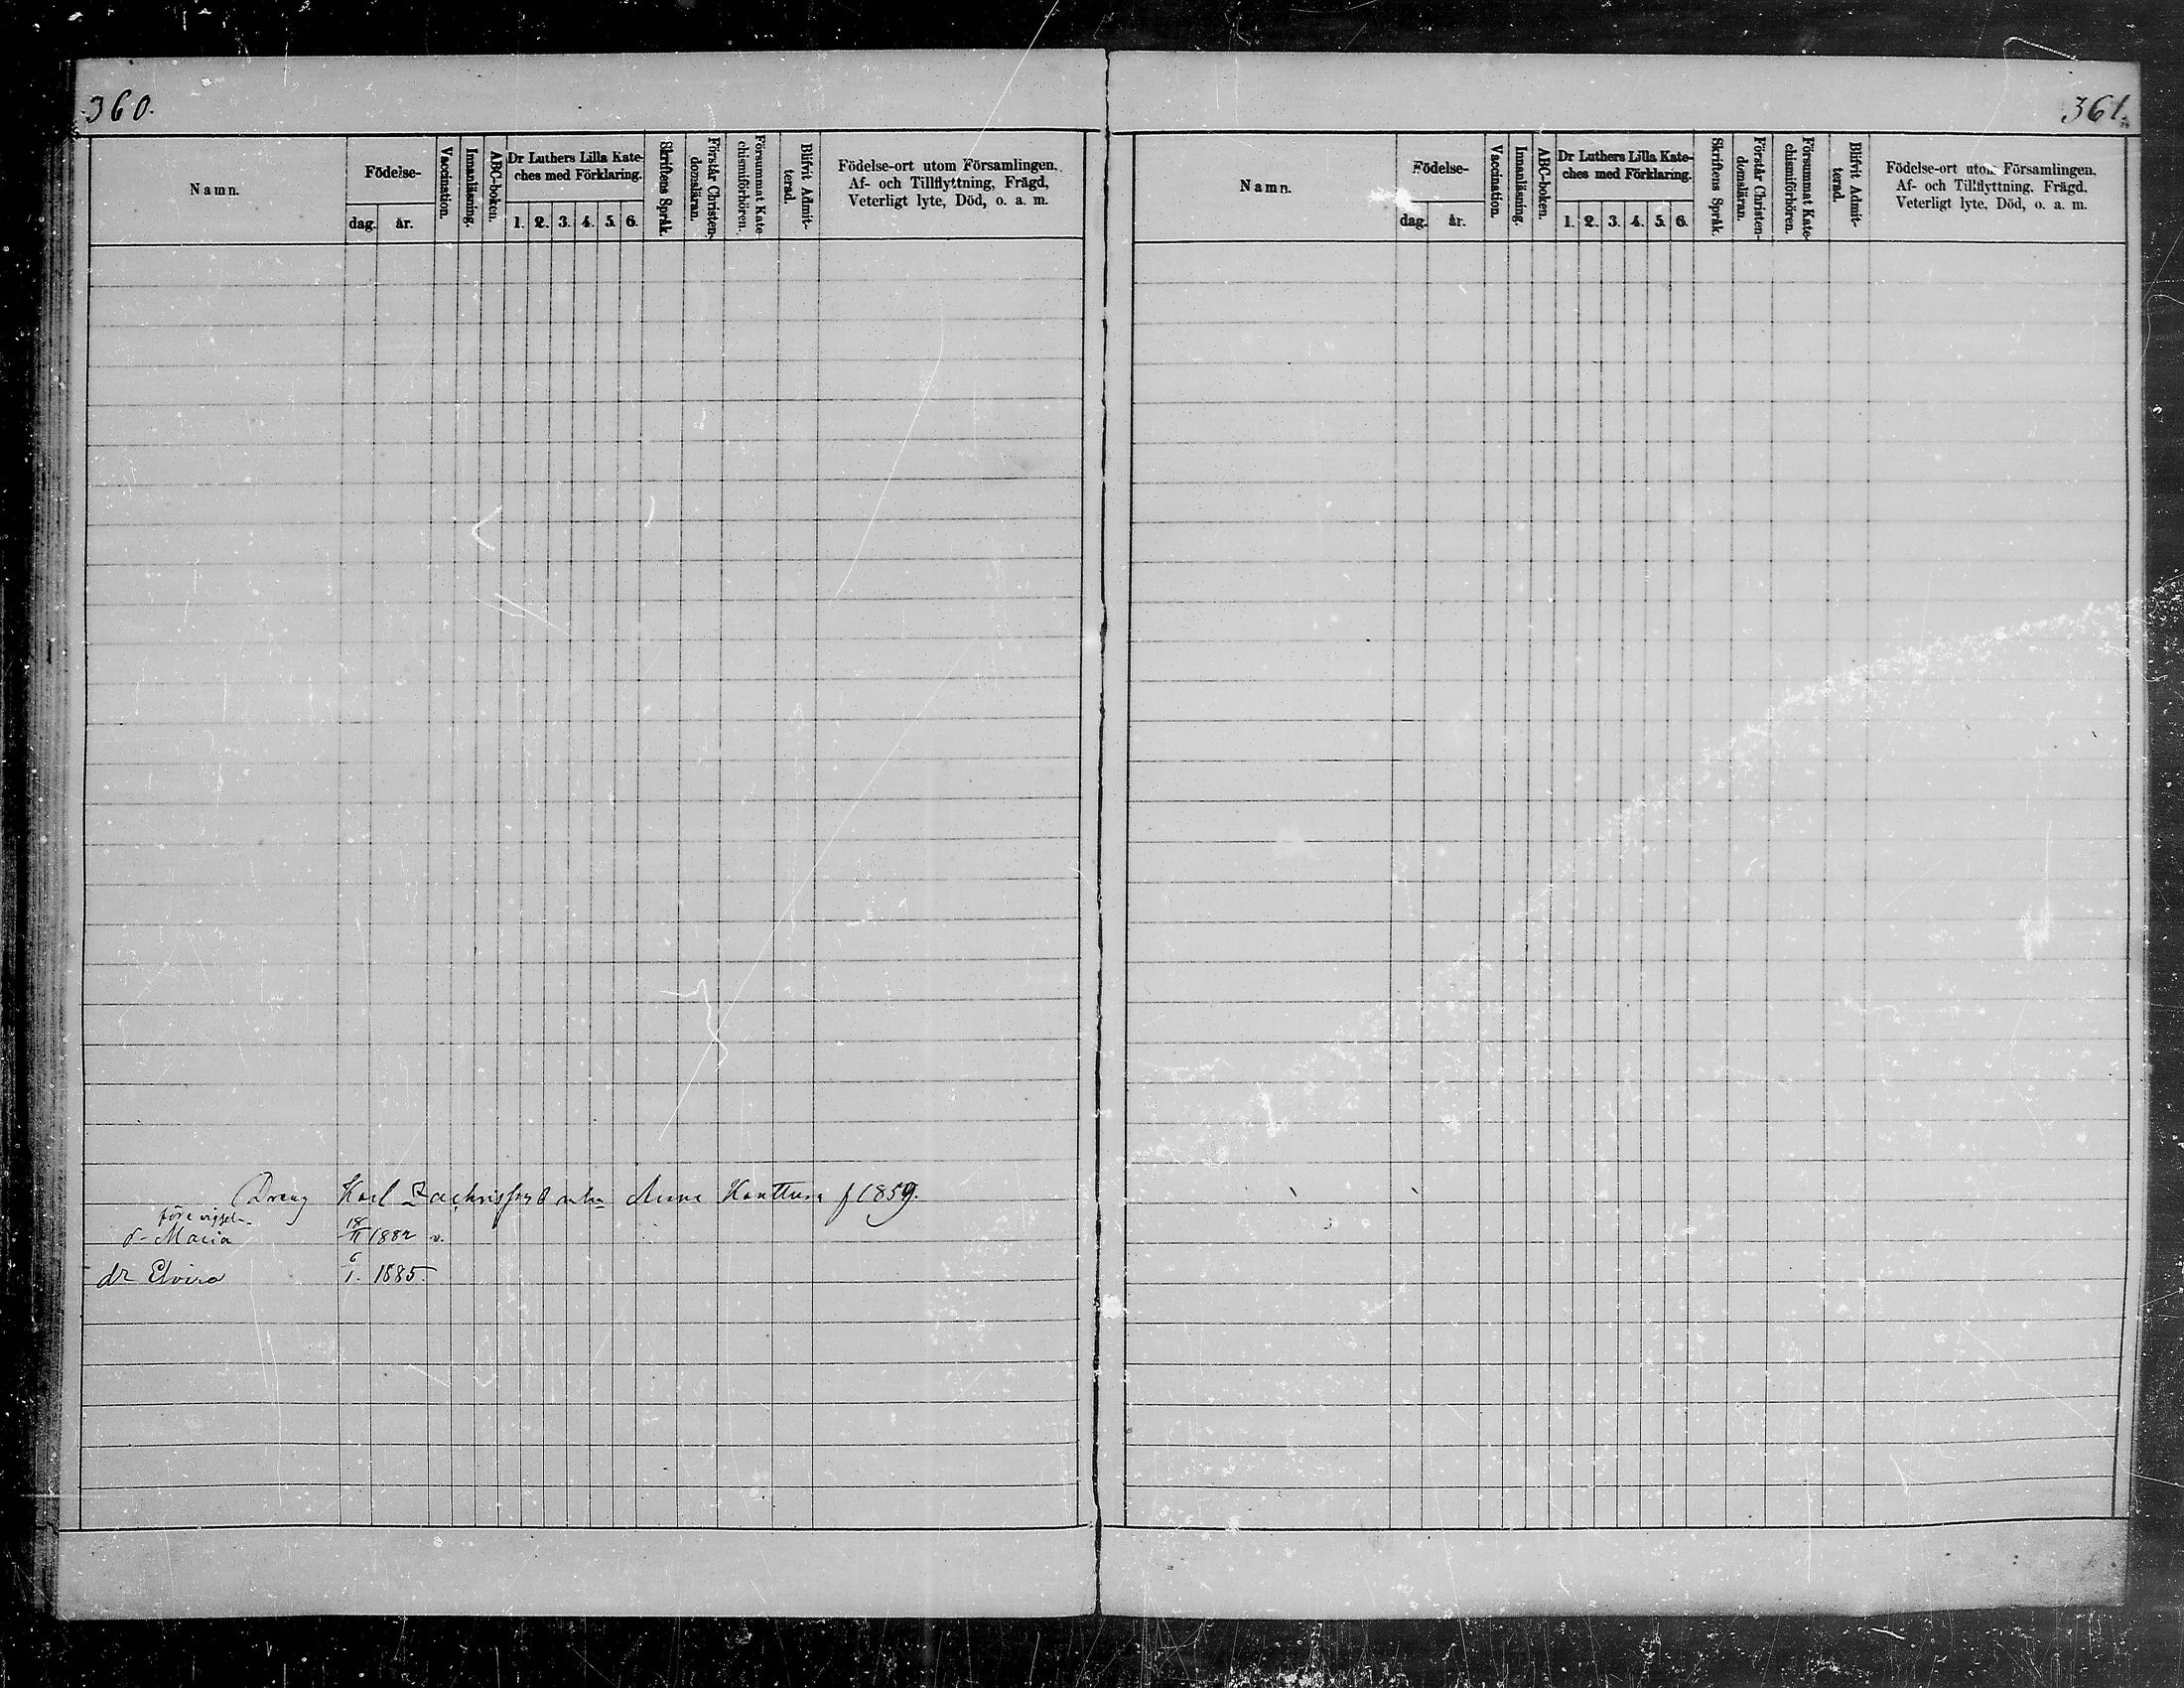 360.
Namn.
Födelse-
dag.
år.
Vaccination.
Innanläsning.
ABC-boken.
Dr Luthers Lilla Kate-
ches med Förklaring.
1. 2. 3. 4. 5. 6.
Skriftens Språk.
Förstår Christen-
domsläran.
Försummat Kate-
chismiförhören.
Blifvit Admit-
terad.
Födelse-ort utom Församlingen.
Af- och Tillflyttning, Frägd,
Veterligt lyte, Död, o. a. m.
Dreng Karl Zachrisson & Anna f 1859.
före vigseln
d- Maria 18/11 1882 v.
dr Elvira 6/1. 1885.
361.
Namn.
Födelse-
dag.
år.
Vaccination.
Innanläsning.
ABC-boken.
Dr Luthers Lilla Kate-
ches med Förklaring.
1. 2. 3. 4. 5. 6.
Skriftens Språk.
Förstår Christen-
domsläran.
Försummat Kate-
chismiförhören.
Blifvit Admit-
terad.
Födelse-ort utom Församlingen.
Af- och Tillflyttning. Frägd.
Veterligt lyte. Död, o. a. m.